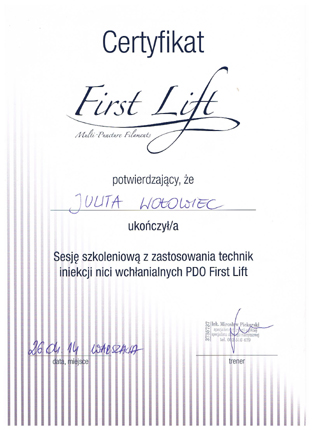 Certyfikat
First Lift
Multi-Puncture Filaments
potwierdzający, że
JULITA WOŁOWIEC
ukończył/a
Sesję szkoleniową z zastosowania technik
iniekcji nici wchłanialnych PDO First Lift
26.04.14 WARSZAWA
data, miejsce
lek. Mirosław
trener